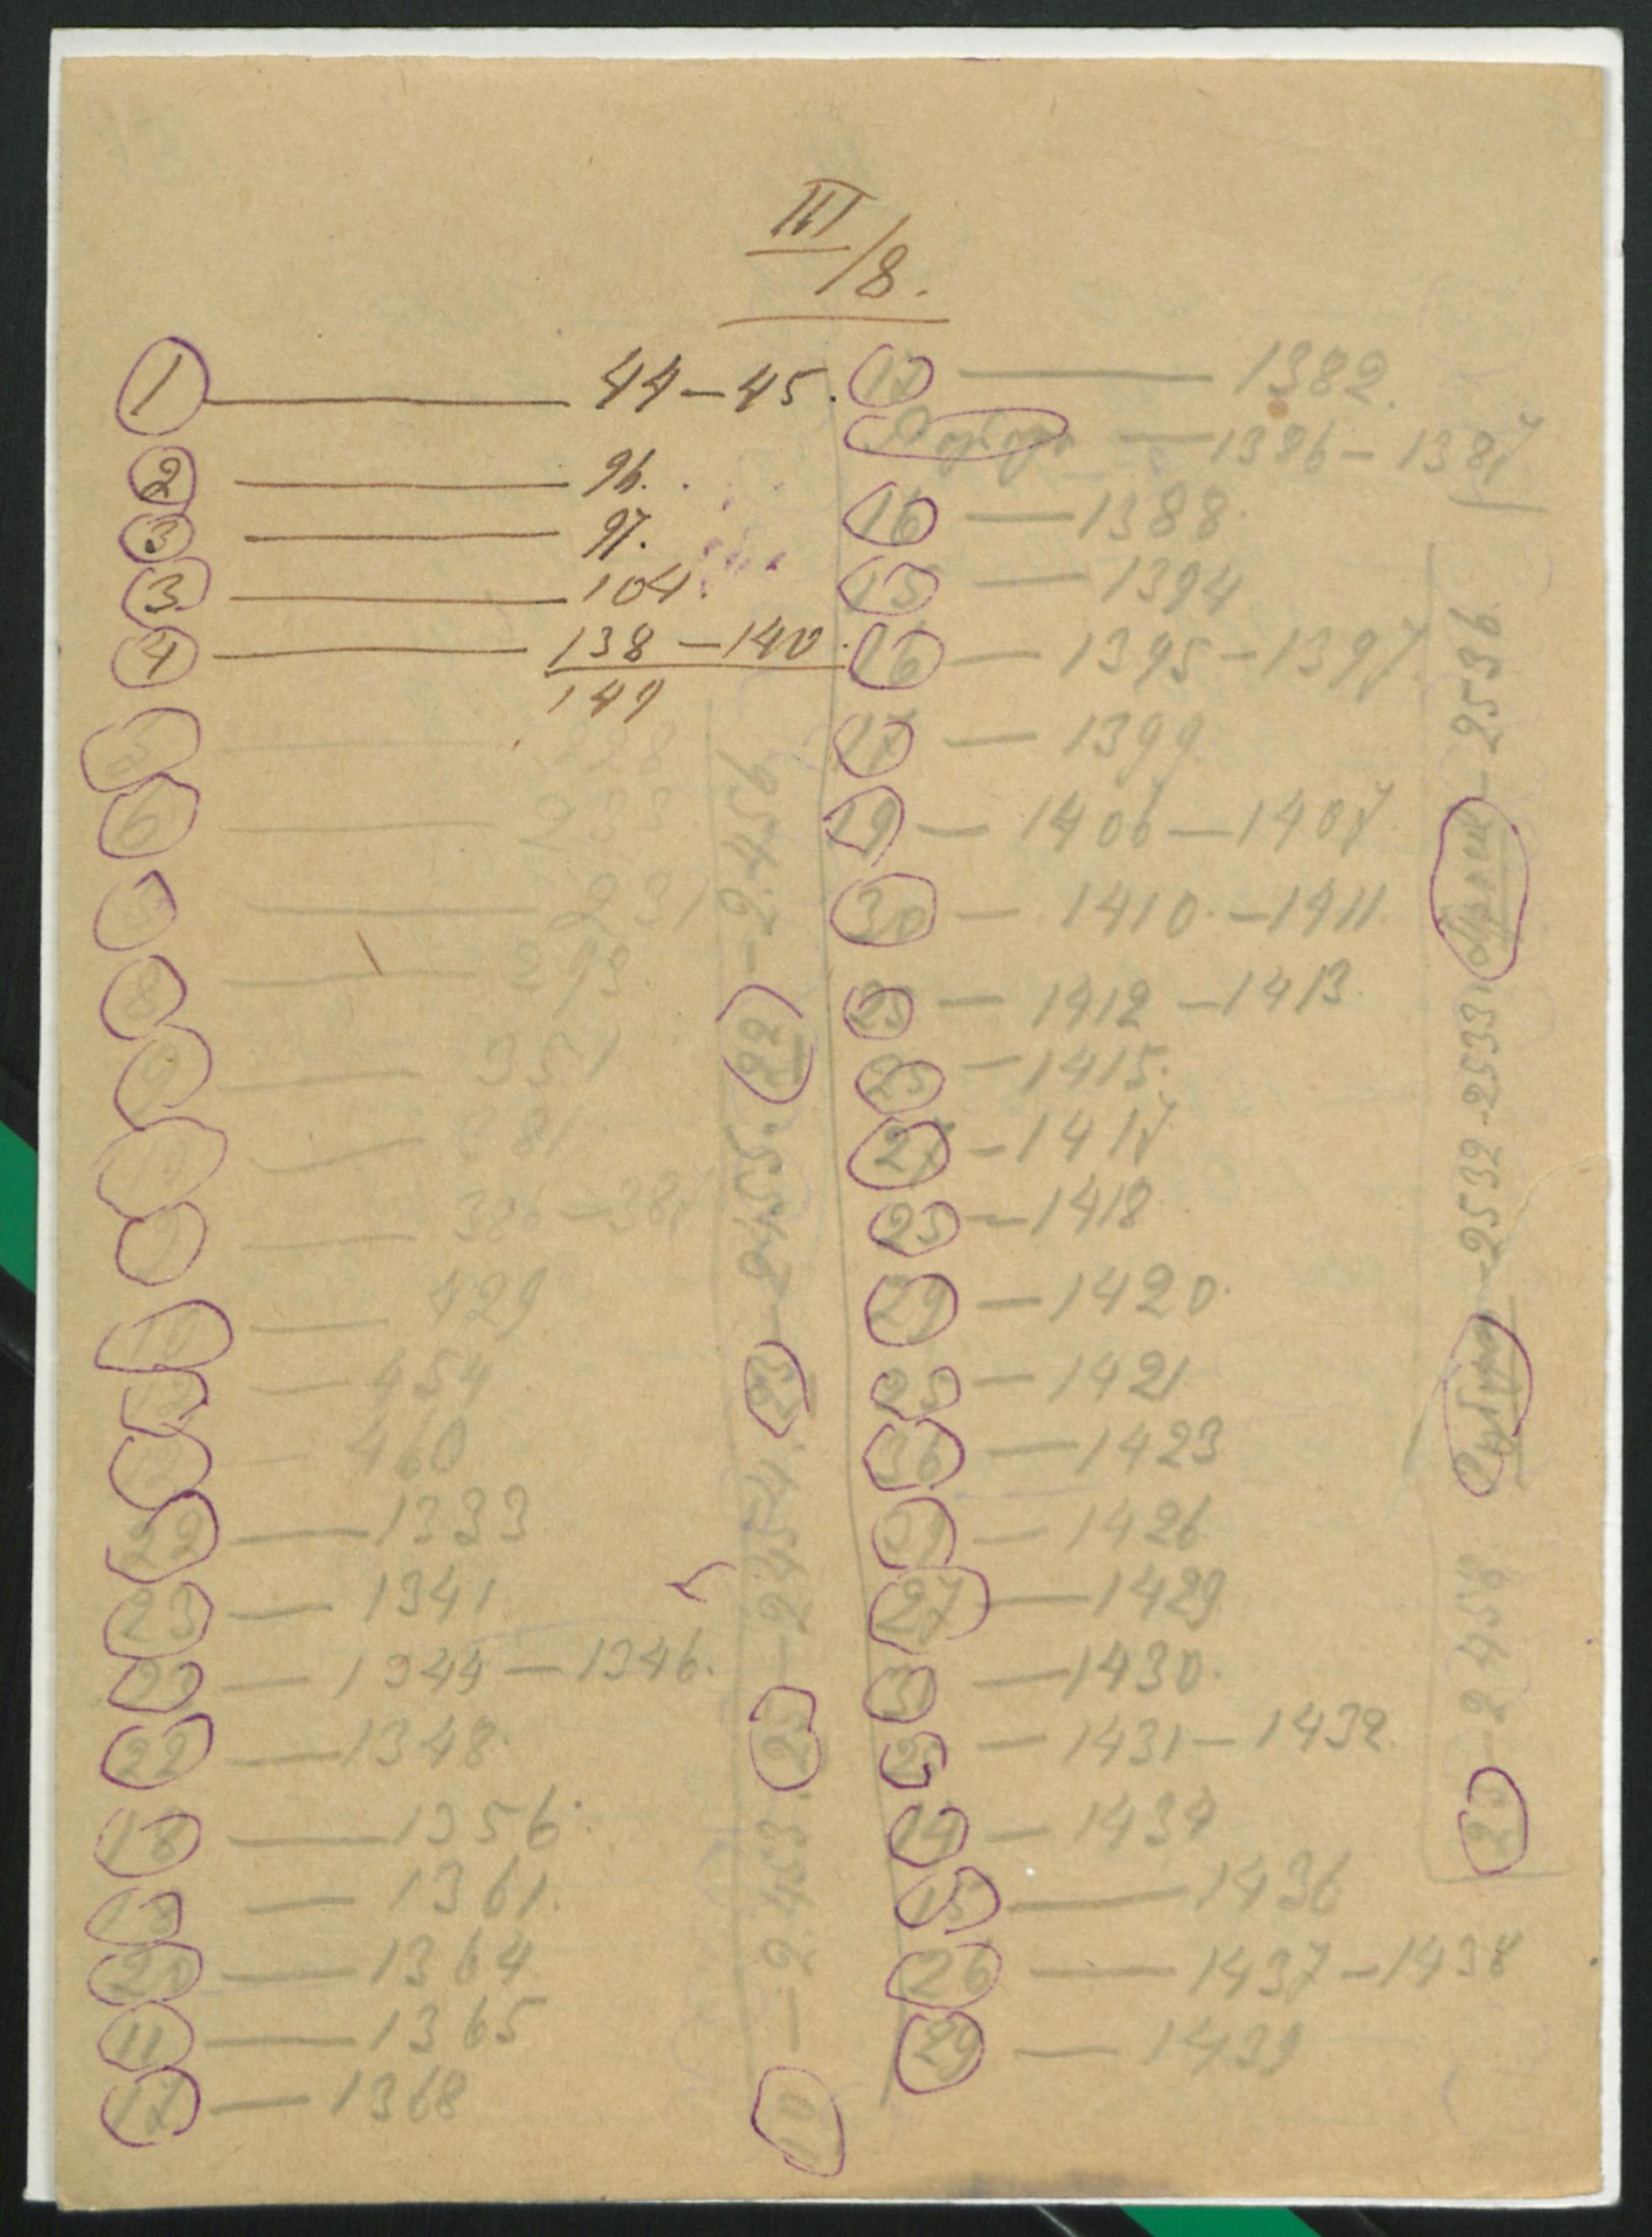 III/8.
1 — 44-45.
2 — 96.
3 — 97.
3 — 104.
4 — 138-140.
149
5 — 228
6 — 233
— 231
8 — 293.
9 — 351
— 381
— 386-387
10 — 429
— 454
— 460
22 — 1333
23 — 1341
— 1344-1346.
22 — 1348.
18 — 1356.
18 — 1361.
21 — 1364
11 — 1365
17 — 1368
10 — 2453. 23 — 2454. 23 — 2455. 22 — 2456
— 1382.
— 1386-1387
16 — 1388.
15 — 1394
16 — 1395-1397
17 — 1399
19 — 1406-1407
30 — 1410-1411.
25 — 1412-1413.
25 — 1415.
27 — 1417
25 — 1418
29 — 1420.
25 — 1421
26 — 1423
— 1426
27 — 1429
— 1430.
25 — 1431-1432.
14 — 1434
15 — 1436
26 — 1437-1438
29 — 1439
— 2458 — 2532-2533 — 2536